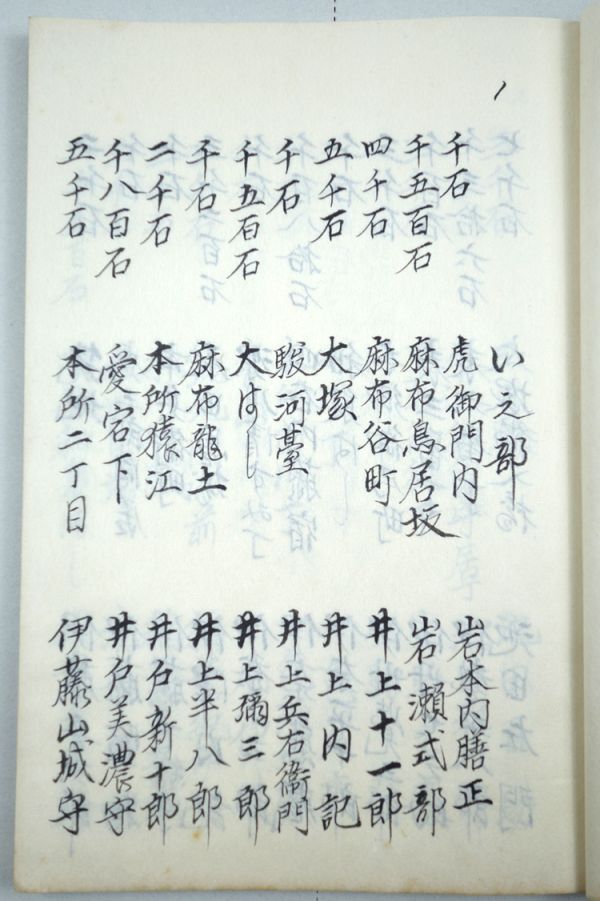 い之部
千石 虎御門内 岩本内膳正
千五百石 麻布鳥居坂 岩瀬式部
四千石 麻布谷町 井上十一郎
五千石 大塚 井上内記
千石 駿河臺 井上兵右衛門
千五百石 大はし 井上彌三郎
千石 麻布龍土 井上半八郎
二千石 本所猿江 井戸新十郎
千八百石 愛宕下 井戸美濃守
五千石 本所二丁目 伊藤山城守